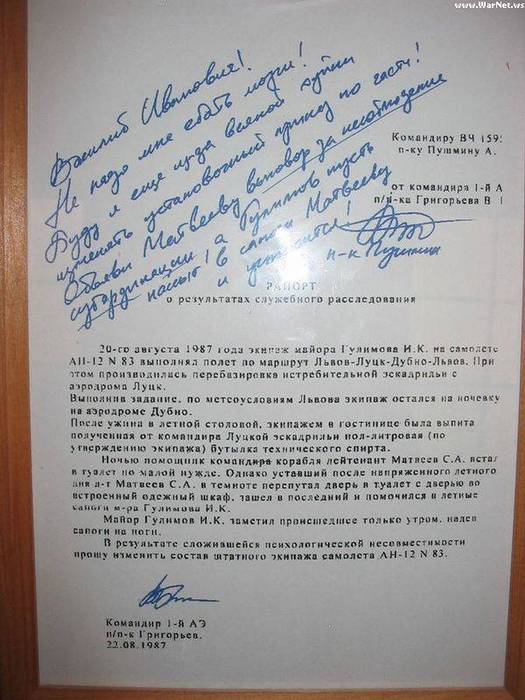 www.WarNet.ws
Василий Иванович!
Не надо мне ебать мозги!
Буду я еще из-за всякой хуйни
изменять установочный приказ по части!
Объяви Матвееву выговор за несоблюдение
субординации, а Гулимов пусть
нассыт в сапоги Матвееву
и успокоится!
п-к Пушмин
Командиру ВЧ 159
п-ку Пушмину А.
от командира 1-й А
п/п-ка Григорьева В
РАПОРТ
о результатах служебного расследования
20-го августа 1987 года экипаж майора Гулимова И.К. на самолете
АН-12 N 83 выполнял полет по маршрут Львов-Луцк-Дубно-Львов. При
этом производилась перебазировка истребительной эскадрильи с
аэродрома Луцк.
Выполнив задание, по метеоусловиям Львова экипаж остался на ночевку
на аэродроме Дубно.
После ужина в летной столовой, экипажем в гостинице была выпита
полученная от командира Луцкой эскадрильи пол-литровая (по
утверждению экипажа) бутылка технического спирта.
Ночью помощник командира корабля лейтенант Матвеев С.А. встал
в туалет по малой нужде. Однако уставший после напряженного летного
дня л-т Матвеев С.А. в темноте перепутал дверь в туалет с дверью во
встроенный одежный шкаф, зашел в последний и помочился в летные
сапоги м-ра Гулимова И.К.
Майор Гулимов И.К. заметил происшедшее только утром, надев
сапоги на ноги.
В результате сложившейся психологической несовместимости
прошу изменить состав штатного экипажа самолета АН-12 N 83.
Командир 1-й АЭ
п/п-к Григорьев.
22.08.1987